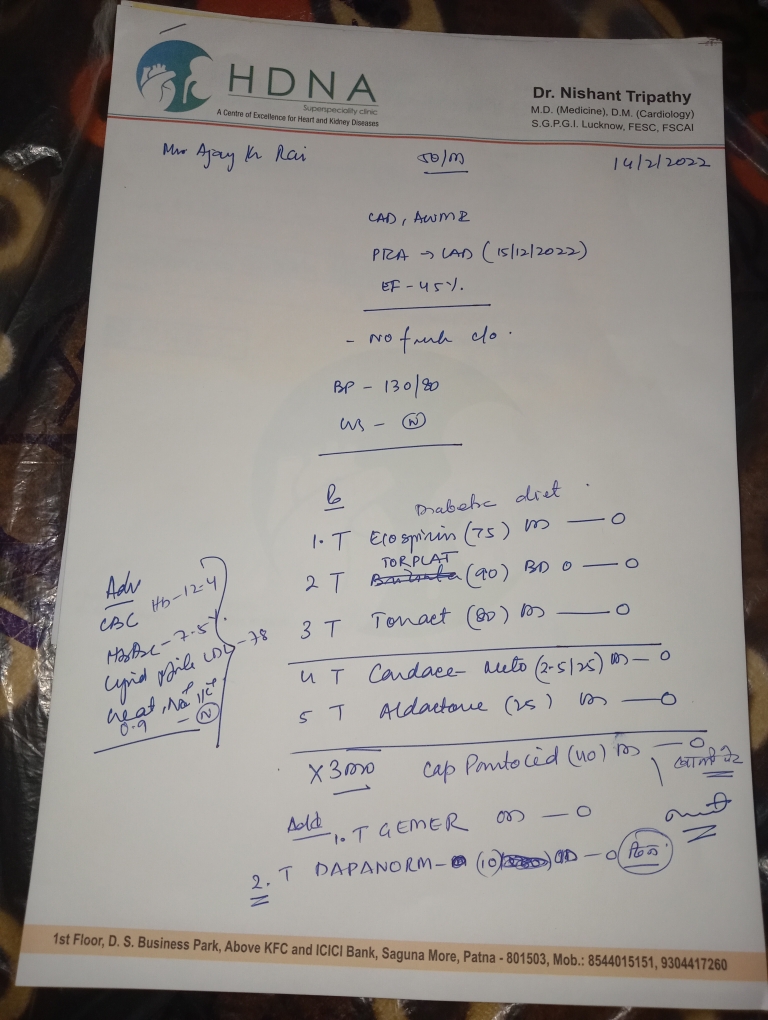 HDNA
Superspeciality clinic
A Centre of Excellence for Heart and Kidney Diseases
Dr. Nishant Tripathy
M.D. (Medicine), D.M. (Cardiology)
S.G.P.G.I. Lucknow, FESC, FSCAI
Mr Ajay Kr Rai 50/M 14/2/2022
CAD, AWMI
PTCA → LAD (15/12/2022)
EF - 45%.
- No fresh c/o.
BP - 130/80
CVS - N
Rx Diabetic diet
1. T Ecosprin (75) OD — 0
TORPLAT
2 T (90) BD 0 — 0
3 T Tonact (80) OD — 0
4 T Cardace Meto (2.5/25) OD — 0
5 T Aldactone (25) OD — 0
X 3 Cap Pantocid (40) OD — 0
Add
1. T GEMER OD — 0
2. T DAPANORM - (10) OD — 0
Adv
CBC Hb - 12.4
HbA1c - 7.5%
Lipid profile LDL - 78
Creat, Na+ K+
0.9 - N
1st Floor, D. S. Business Park, Above KFC and ICICI Bank, Saguna More, Patna - 801503, Mob.: 8544015151, 9304417260